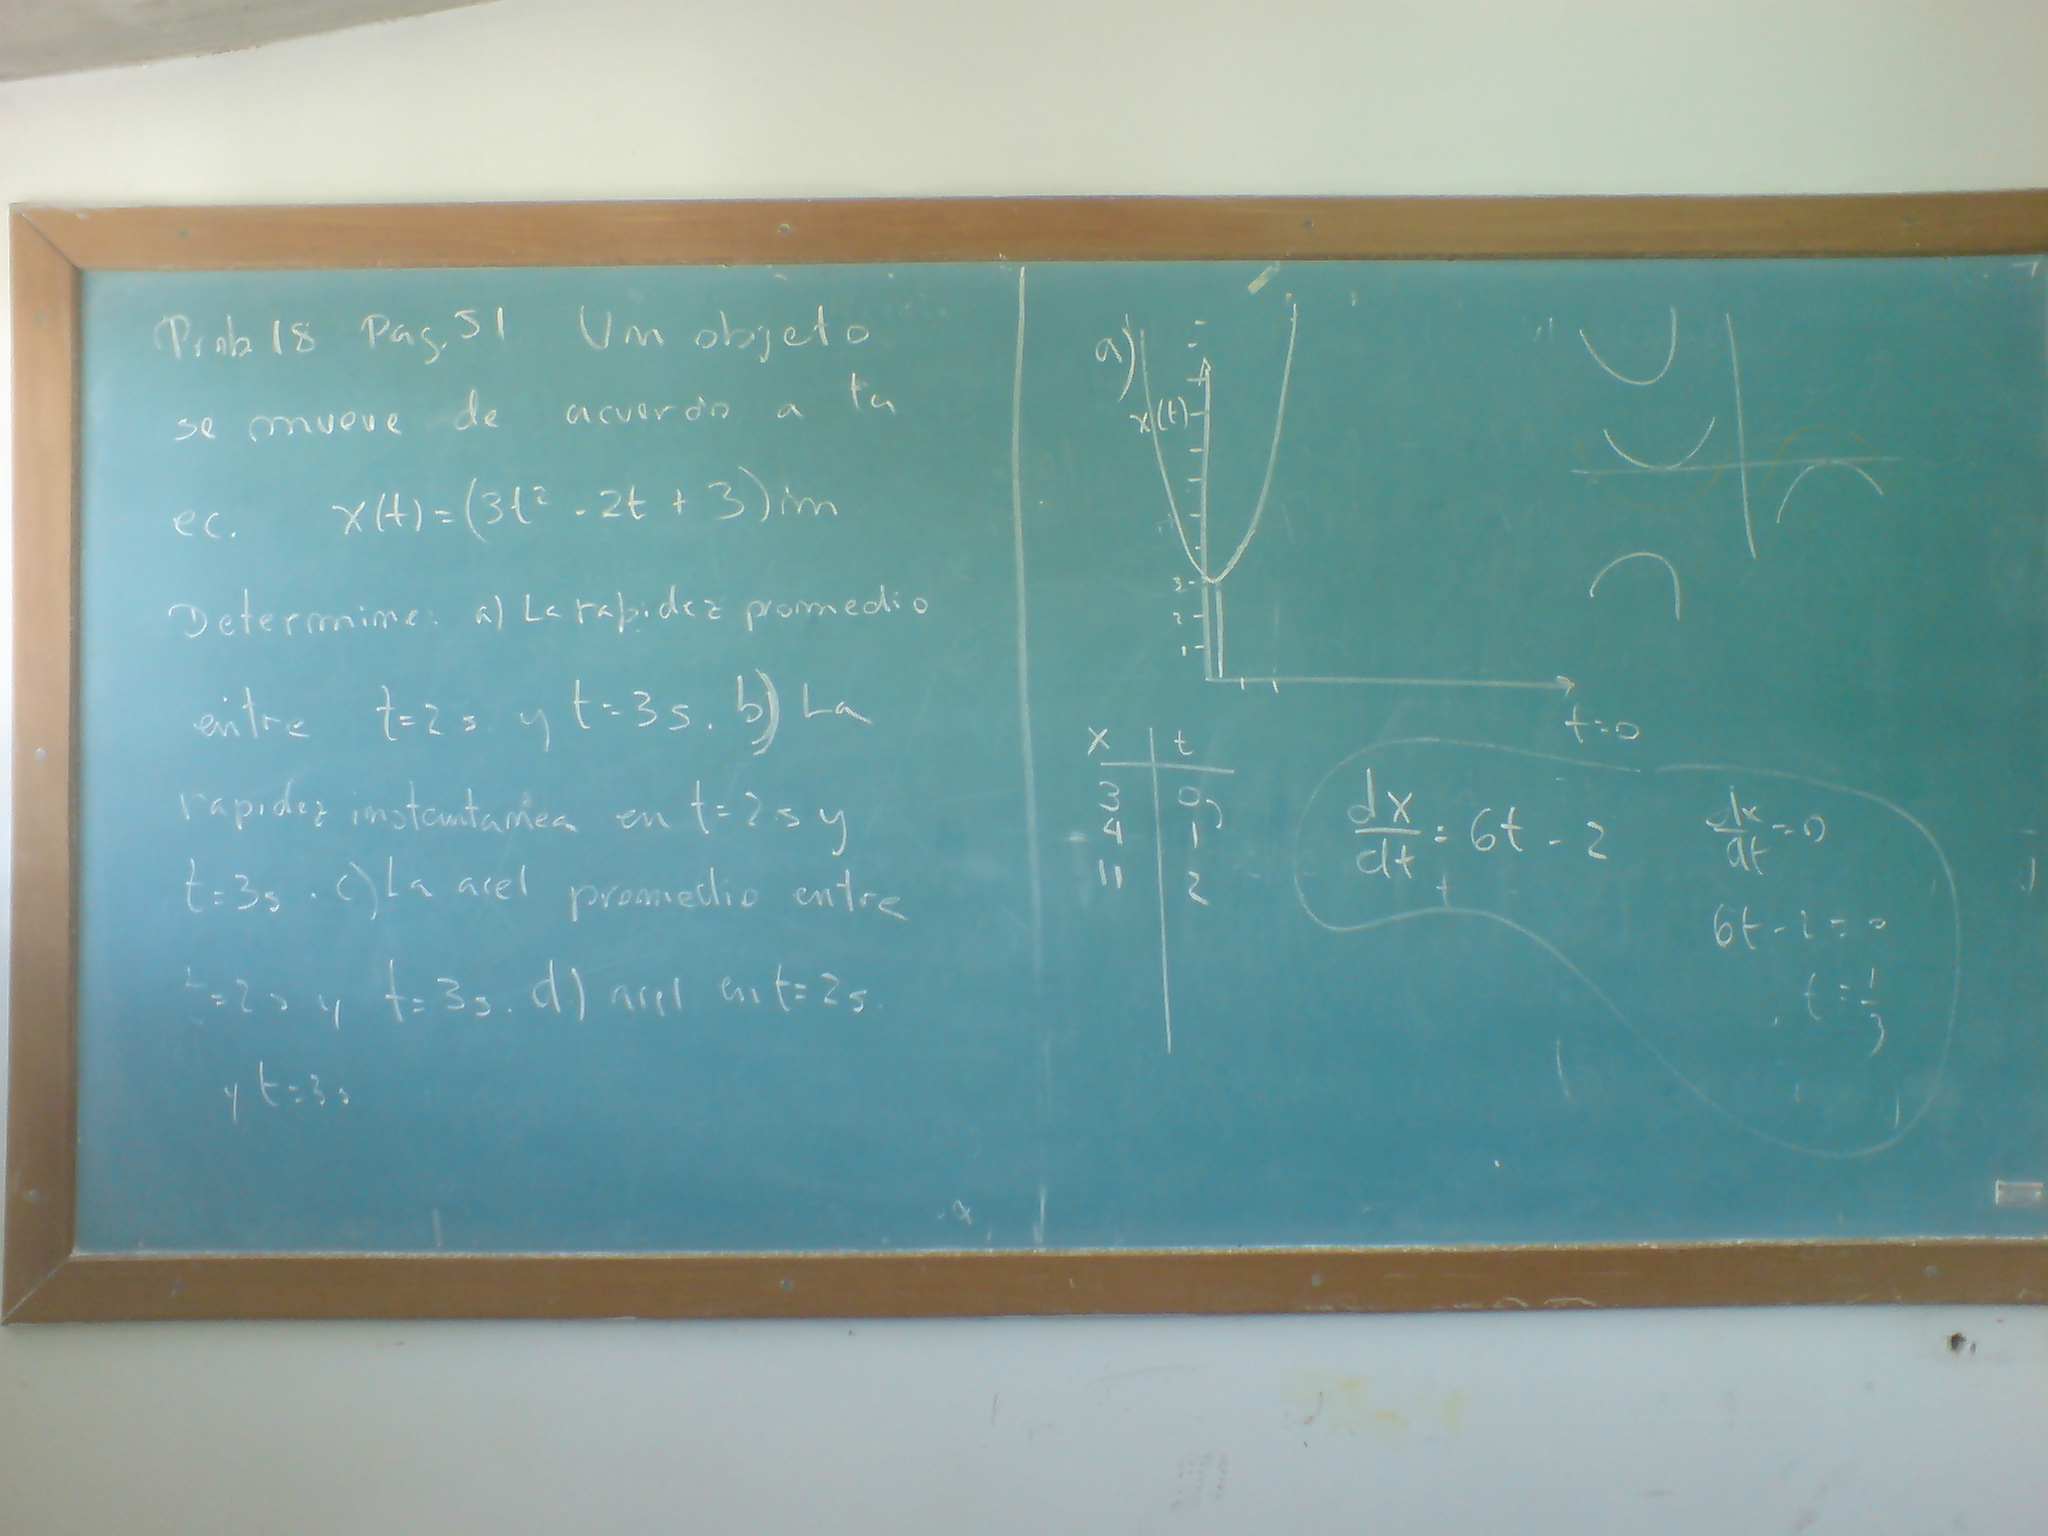 Prob 18 Pag. 51 Un objeto
se mueve de acuerdo a la
ec. x(t) = (3t² - 2t + 3) m
Determine: a) La rapidez promedio
entre t=2s y t=3s. b) La
rapidez instantanea en t=2s y
t=3s. c) La acel promedio entre
t=2s y t=3s. d) acel en t=2s.
y t=3s
a)
x(t)
3
2
1
t=0
x t
3 0
4 1
11 2
dx/dt = 6t - 2
dx/dt = 0
6t - 2 = 0
t = 1/3